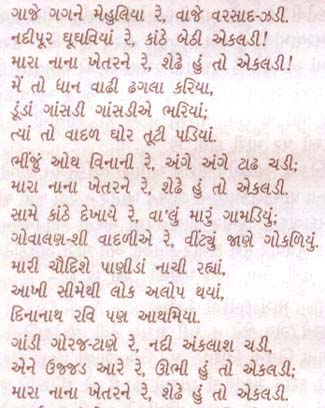 ગાજે ગગને મેહુલિયા રે, વાજે વરસાદ-ઝડી.
નદીપૂર ઘૂઘવિયાં રે, કાંઠે બેઠી એકલડી!
મારા નાના ખેતરને રે, શેઢે હું તો એકલડી!
મેં તો ધાન વાઢી ઢગલા કરિયા,
ડૂંડાં ગાંસડી ગાંસડીએ ભરિયાં;
ત્યાં તો વાદળ ઘોર તૂટી પડિયાં.
ભીંજું ઓથ વિનાની રે, અંગે અંગે ટાઢ ચડી;
મારા નાના ખેતરને રે, શેઢે હું તો એકલડી.
સામે કાંઠે દેખાયે રે, વા'લું મારું ગામડિયું;
ગોવાલણ-શી વાદળીએ રે, વીંટ્યું જાણે ગોકળિયું.
મારી ચૌદિશે પાણીડાં નાચી રહ્યાં,
આખી સીમેથી લોક અલોપ થયાં,
દિનાનાથ રવિ પણ આથમિયા.
ગાંડી ગોરજ-ટાણે રે, નદી અંકલાશ ચડી,
એને ઉજ્જડ આરે રે, ઊભી હું તો એકલડી;
મારા નાના ખેતરને રે, શેઢે હું તો એકલડી.